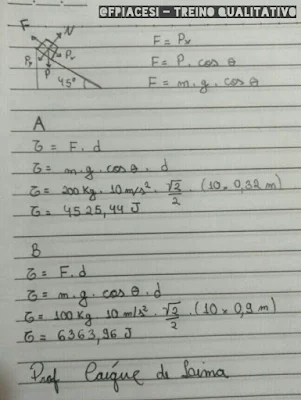 @FPIACESI - TREINO QUALITATIVO
F N
Px Py
P
45°
F = Px
F = P. cos θ
F = m. g. cos θ
A
τ = F. d
τ = m. g. cos θ. d
τ = 200 kg. 10 m/s². √2/2 . (10 × 0,32 m)
τ = 4525,44 J
B
τ = F. d
τ = m. g. cos θ. d
τ = 100 kg. 10 m/s². √2/2 . (10 × 0,9 m)
τ = 6363,96 J
Prof Caíque de Lima